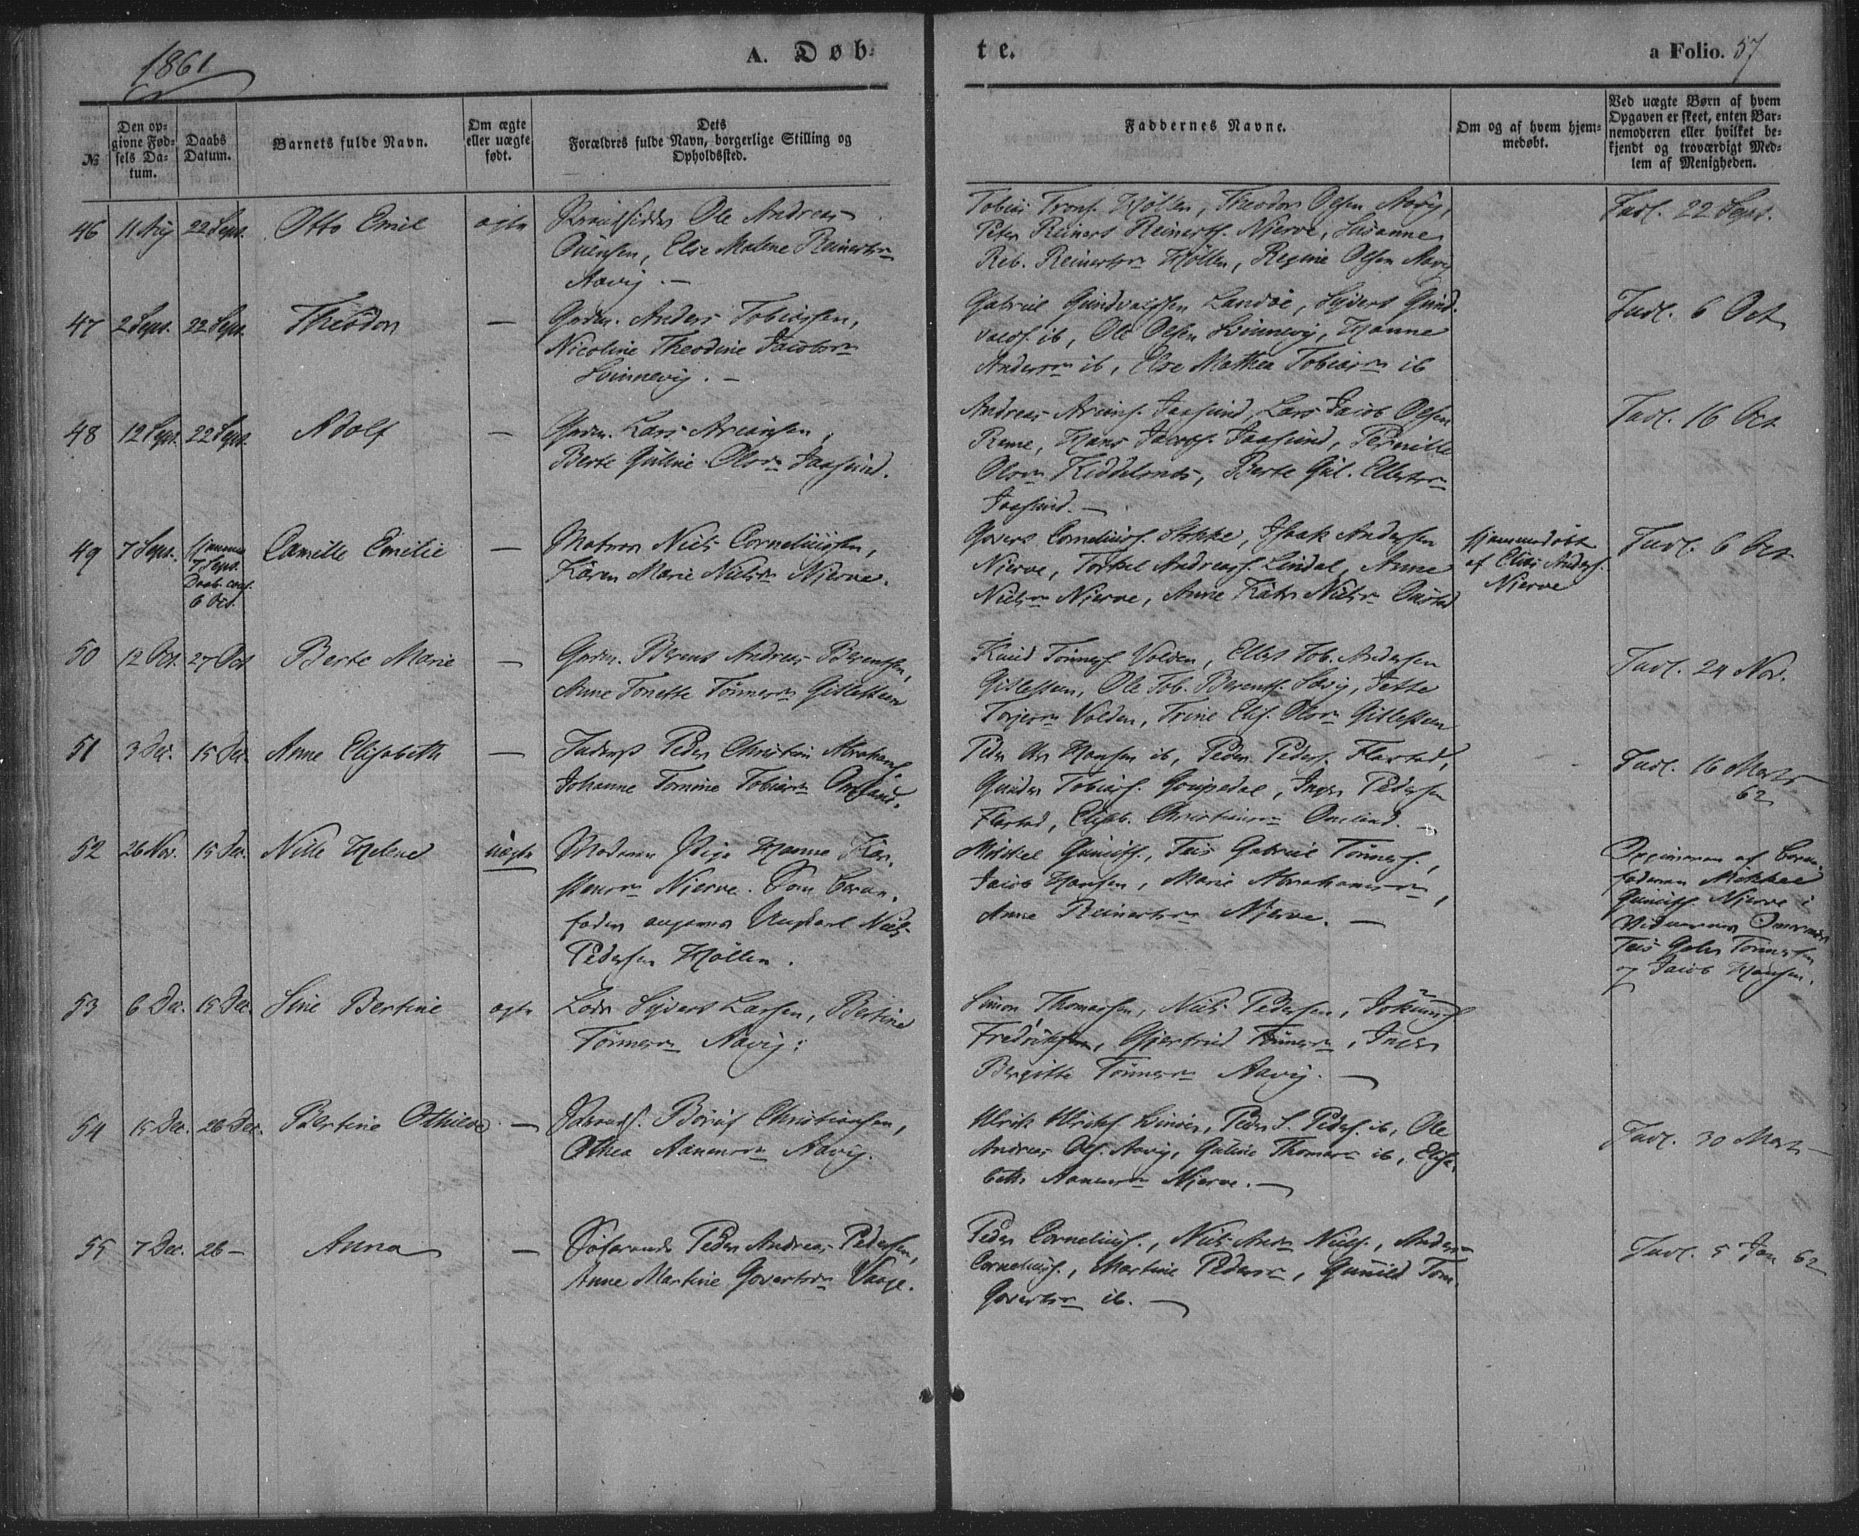 1861
A. Døbte.
a Folio. 57
№
Den opgivne Fødsels Datum.
Daabs Datum.
Barnets fulde Navn.
Om ægte eller uægte født.
Dets Forældres fulde Navn, borgerlige Stilling og Opholdssted.
Faddernes Navne.
Om og af hvem hjemmedøbt.
Ved uægte Børn af hvem Opgaven er skeet, enten Barnemoderen eller hvilket bekjendt og troværdigt Medlem af Menigheden.
46 11 Aug 22 Sept. Otto Emil ægte
Ole Andreas
Ouensen, Else Malene Reinertsn
Aavig. —
Tobias Trons. Høllen, Theodor Olsen Aavig,
Peter Reinert Reinerts. Njerve, Susanne
Reb. Reinertsn Høllen, Regine Olsen Aavig
Indl. 22 Sept.
47 2 Sept. 22 Sept. Theodor —
Gadm. Anders Tobiassen,
Nicoline Theodine Jacobsn
Svinnevig. —
Gabriel Gundvaldsen Landøe, Syvert Gund-
valds. ib, Ole Olsen Svinnevig, Hanne
Andersn ib, Else Mathea Tobiasn ib
Indl. 6 Oct
48 12 Sept. 22 Sept. Adolf —
Gadm. Lars Arians en,
Berte Guline Olsn Jaasund.
Andreas Arians. Jaasund, Lars Jacob Olsen
Rene, Hans Jacobs. Jaasund, Pernille
Olsn Kiddelsnes, Berte Gul. Ellertsn
Jaasund. —
Indl. 16 Oct
49 7 Sept. hjemme 7 Sept. Daab conf. 6 Oct. Camille Emilie —
Matros Niels Corneliussen,
Karen Marie Nielsn Njerve.
Govert Cornelius. Stokke, Isaak Andersen
Njerve, Torkel Andreas. Lindal, Anne
Nielsn Njerve, Anne Kath. Nielsn
hjemmedøbt
af Elias Anders.
Njerve
Indl. 6 Oct
50 12 Oct. 27 Oct Berte Marie —
Gadm. Berent Andreas Berentsen,
Anne Tonette Tønnesn Gislefsen
Knud Tønnes. Volden, Ellef Tob. Andersen
Gislefsen, Ole Tob. Berents. Jette
Torjesn Volden, Trine Elis. Olsn Gislefsen
Indl. 24 Nov.
51 3 Dec. 15 Dec. Anne Elisabeth —
Inderst Peder Christian Abrahams.
Johanne Tomine Tobiasn Omland.
Peder Chr Hansen ib, Peder Peders. Flastad,
Gunder Tobias. Inger Pedersen
Flastad, Elisab. Christiansn Omland. —
Indl. 16 Marts
62
52 26 Nov. 15 Dec. Nille Helene uægte
Moderen Pige Hanne Kar-
stensn Njerve. Som Barne-
fader angives Ungkarl Niels
Pedersen Høllen.
Mikkel Gunnufs., Teis Gabriel Tønnes.,
Jacob Hansen, Marie Abrahamsn,
Anne Reinertsn Njerve. —
af Barne-
faderen Mikkel
Gunnufs. Njerve i
Teis Gabr Tønnesen
og Jacob Hansen.
53 6 Dec. 15 Dec. Sine Bertine ægte
Lods Syvert Larsen, Bertine
Tønnesn Aavig.
Simon Thomassen, Niels Pedersen, Jokum
Fredriksen, Gjertrud Tønnesn, Inger
Bergitte Tønnesn Aavig. —
54 15 Dec. 26 Dec. Bertine Othilde —
Børuf Christiansen,
Othea Aanensn Aavig.
Ulrik Ulriks. Peder S. Peders. ib, Ole
Andreas Ols. Aavig, Guline Thomasn ib, Elisa-
beth Aanensn Njerve. —
Indl. 30 Marts
55 7 Dec. 26 — Anna —
Søfarende Peder Andreas Pedersen,
Anne Martine Govertsn Vaage.
Peder Cornelius., Niels And. Niels., Anders
Cornelius., Martine Pedersn, Gunild Tom.
Govertsn ib. —
Indl. 5 Jan 62